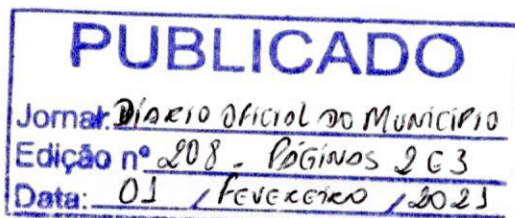 PUBLICADO
Jornal: DIÁRIO OFICIAL DO MUNICÍPIO
Edição nº 208 - PÁGINAS 2 E 3
Data: 01 / FEVEREIRO / 2021